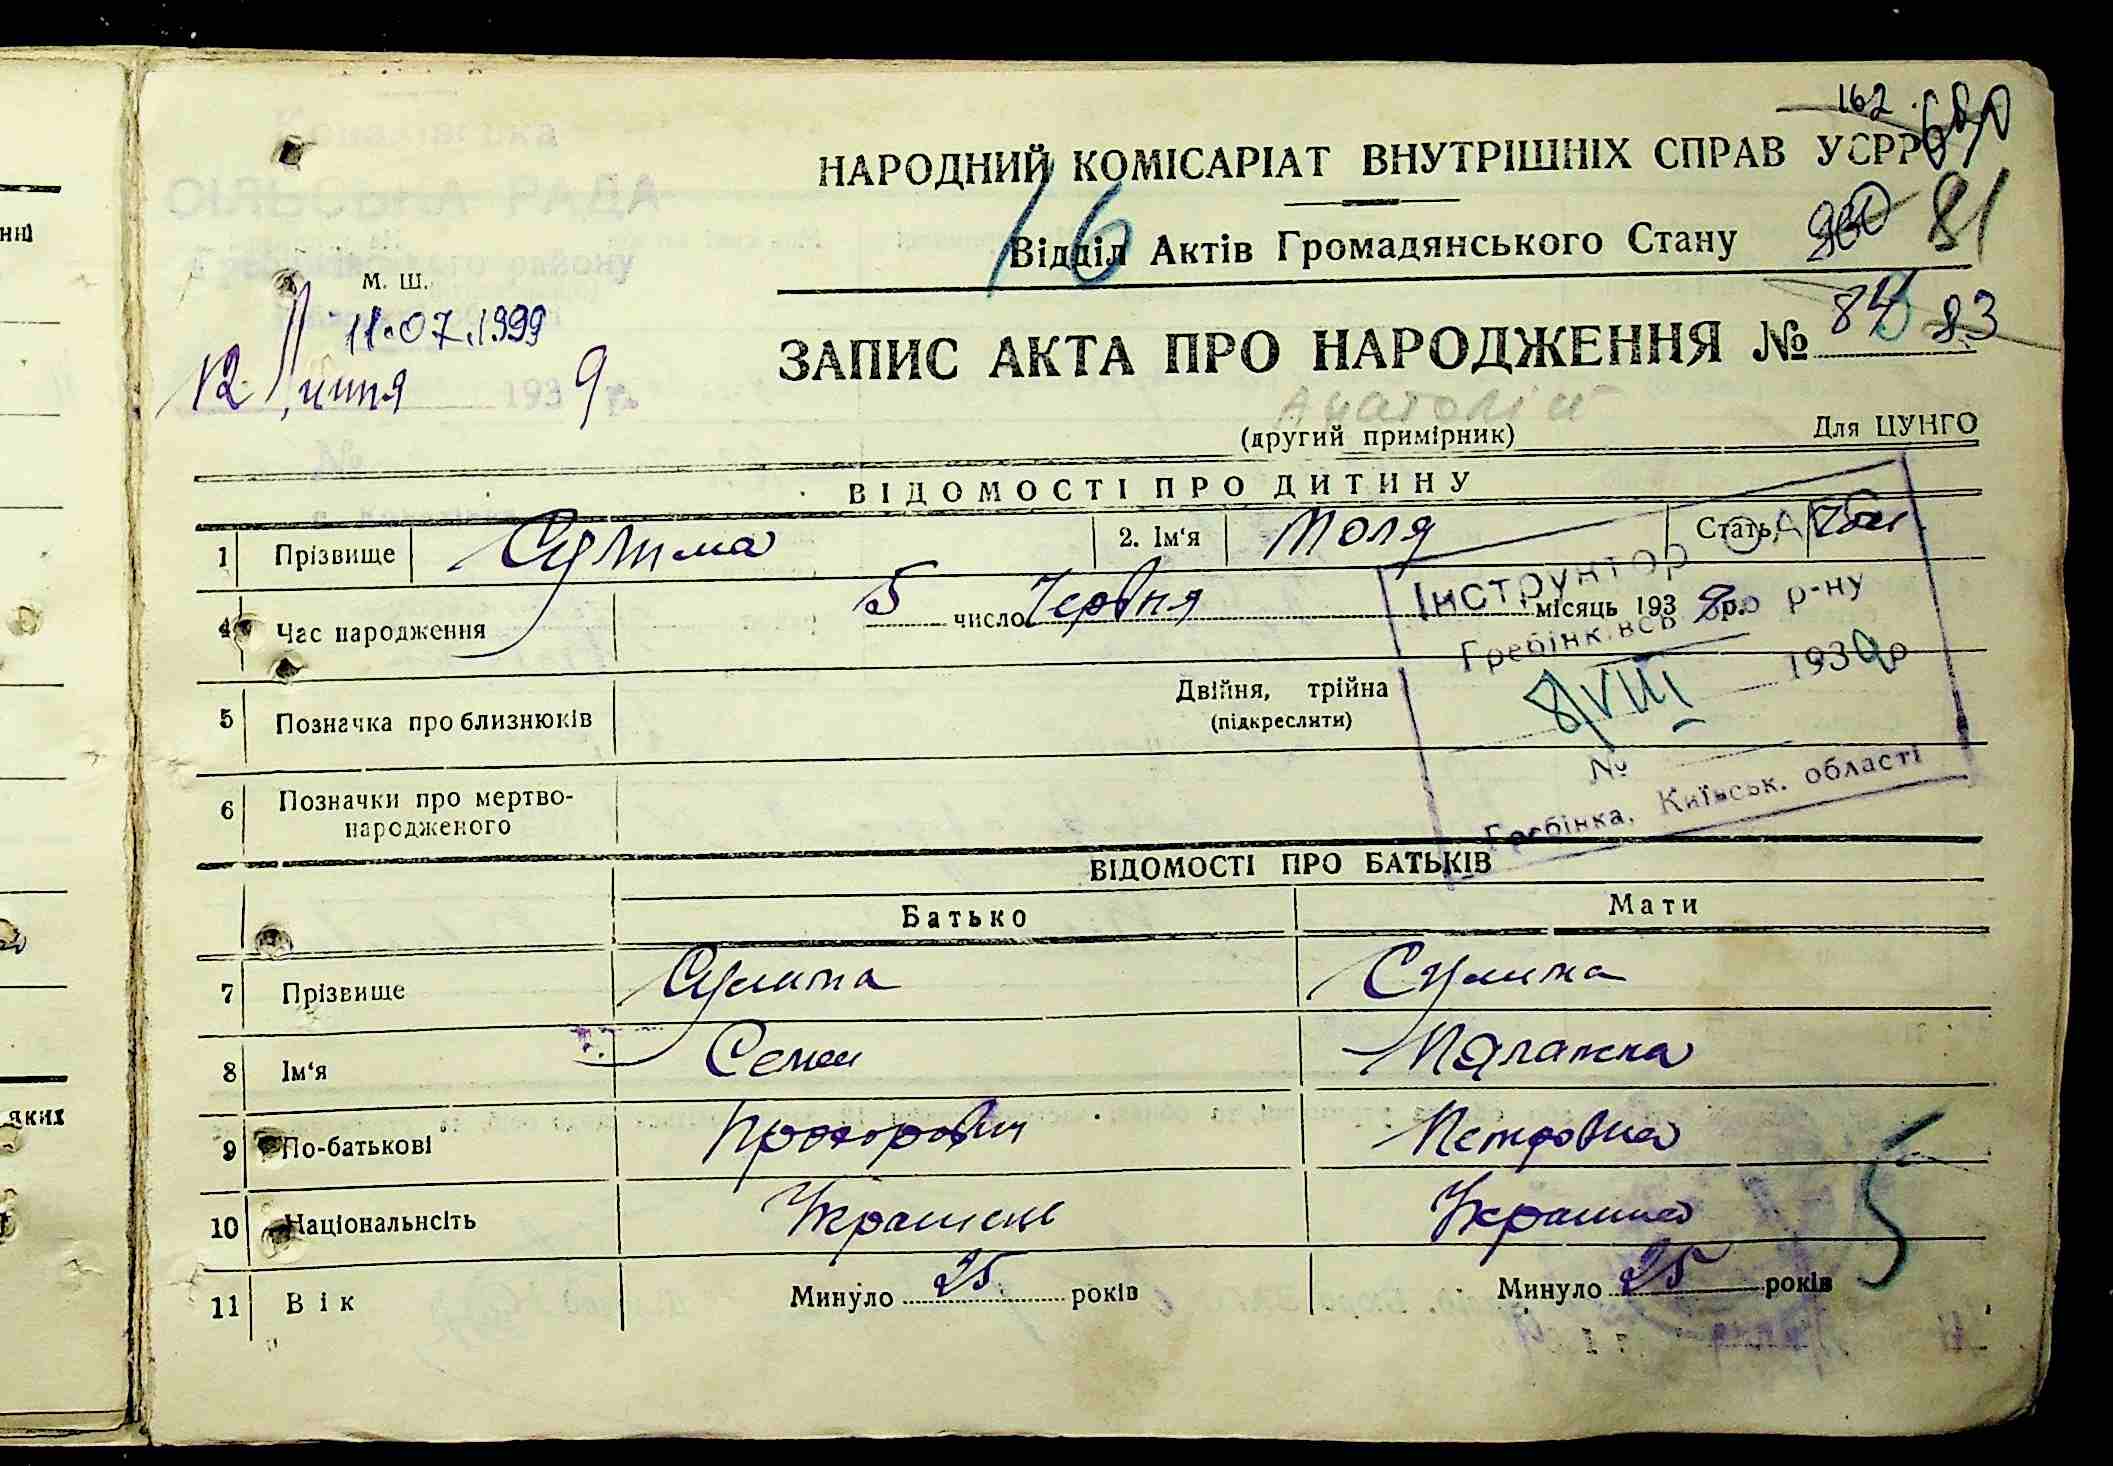 162
НАРОДНИЙ КОМІСАРІАТ ВНУТРІШНІХ СПРАВ УСРР
16
81
Відділ Актів Громадянського Стану
СІЛЬСЬКА РАДА
М. Ш.
11.07.1999
84 83
ЗАПИС АКТА ПРО НАРОДЖЕННЯ №
12 Липня 1939 р.
Анатолій
(другий примірник)
Для ЦУНГО
ВІДОМОСТІ ПРО ДИТИНУ
1 Прізвище Сулима 2. Ім'я Толя Стать
4 Час народження 5 число Червня місяць 1939 р.
Інструктор
Гребінківськ р-ну
8/VIII 1939 р
№
Гребінка, Київськ. області
5 Позначка про близнюків Двійня, трійна
(підкреслити)
6 Позначки про мертво-
народженого
ВІДОМОСТІ ПРО БАТЬКІВ
Батько Мати
7 Прізвище Сулима Сулима
8 Ім'я Семен Палажка
9 По-батькові Прохорович Петровна
10 Національнсіть Українець Українка
5
11 Вік Минуло 25 років Минуло 25 років
яких